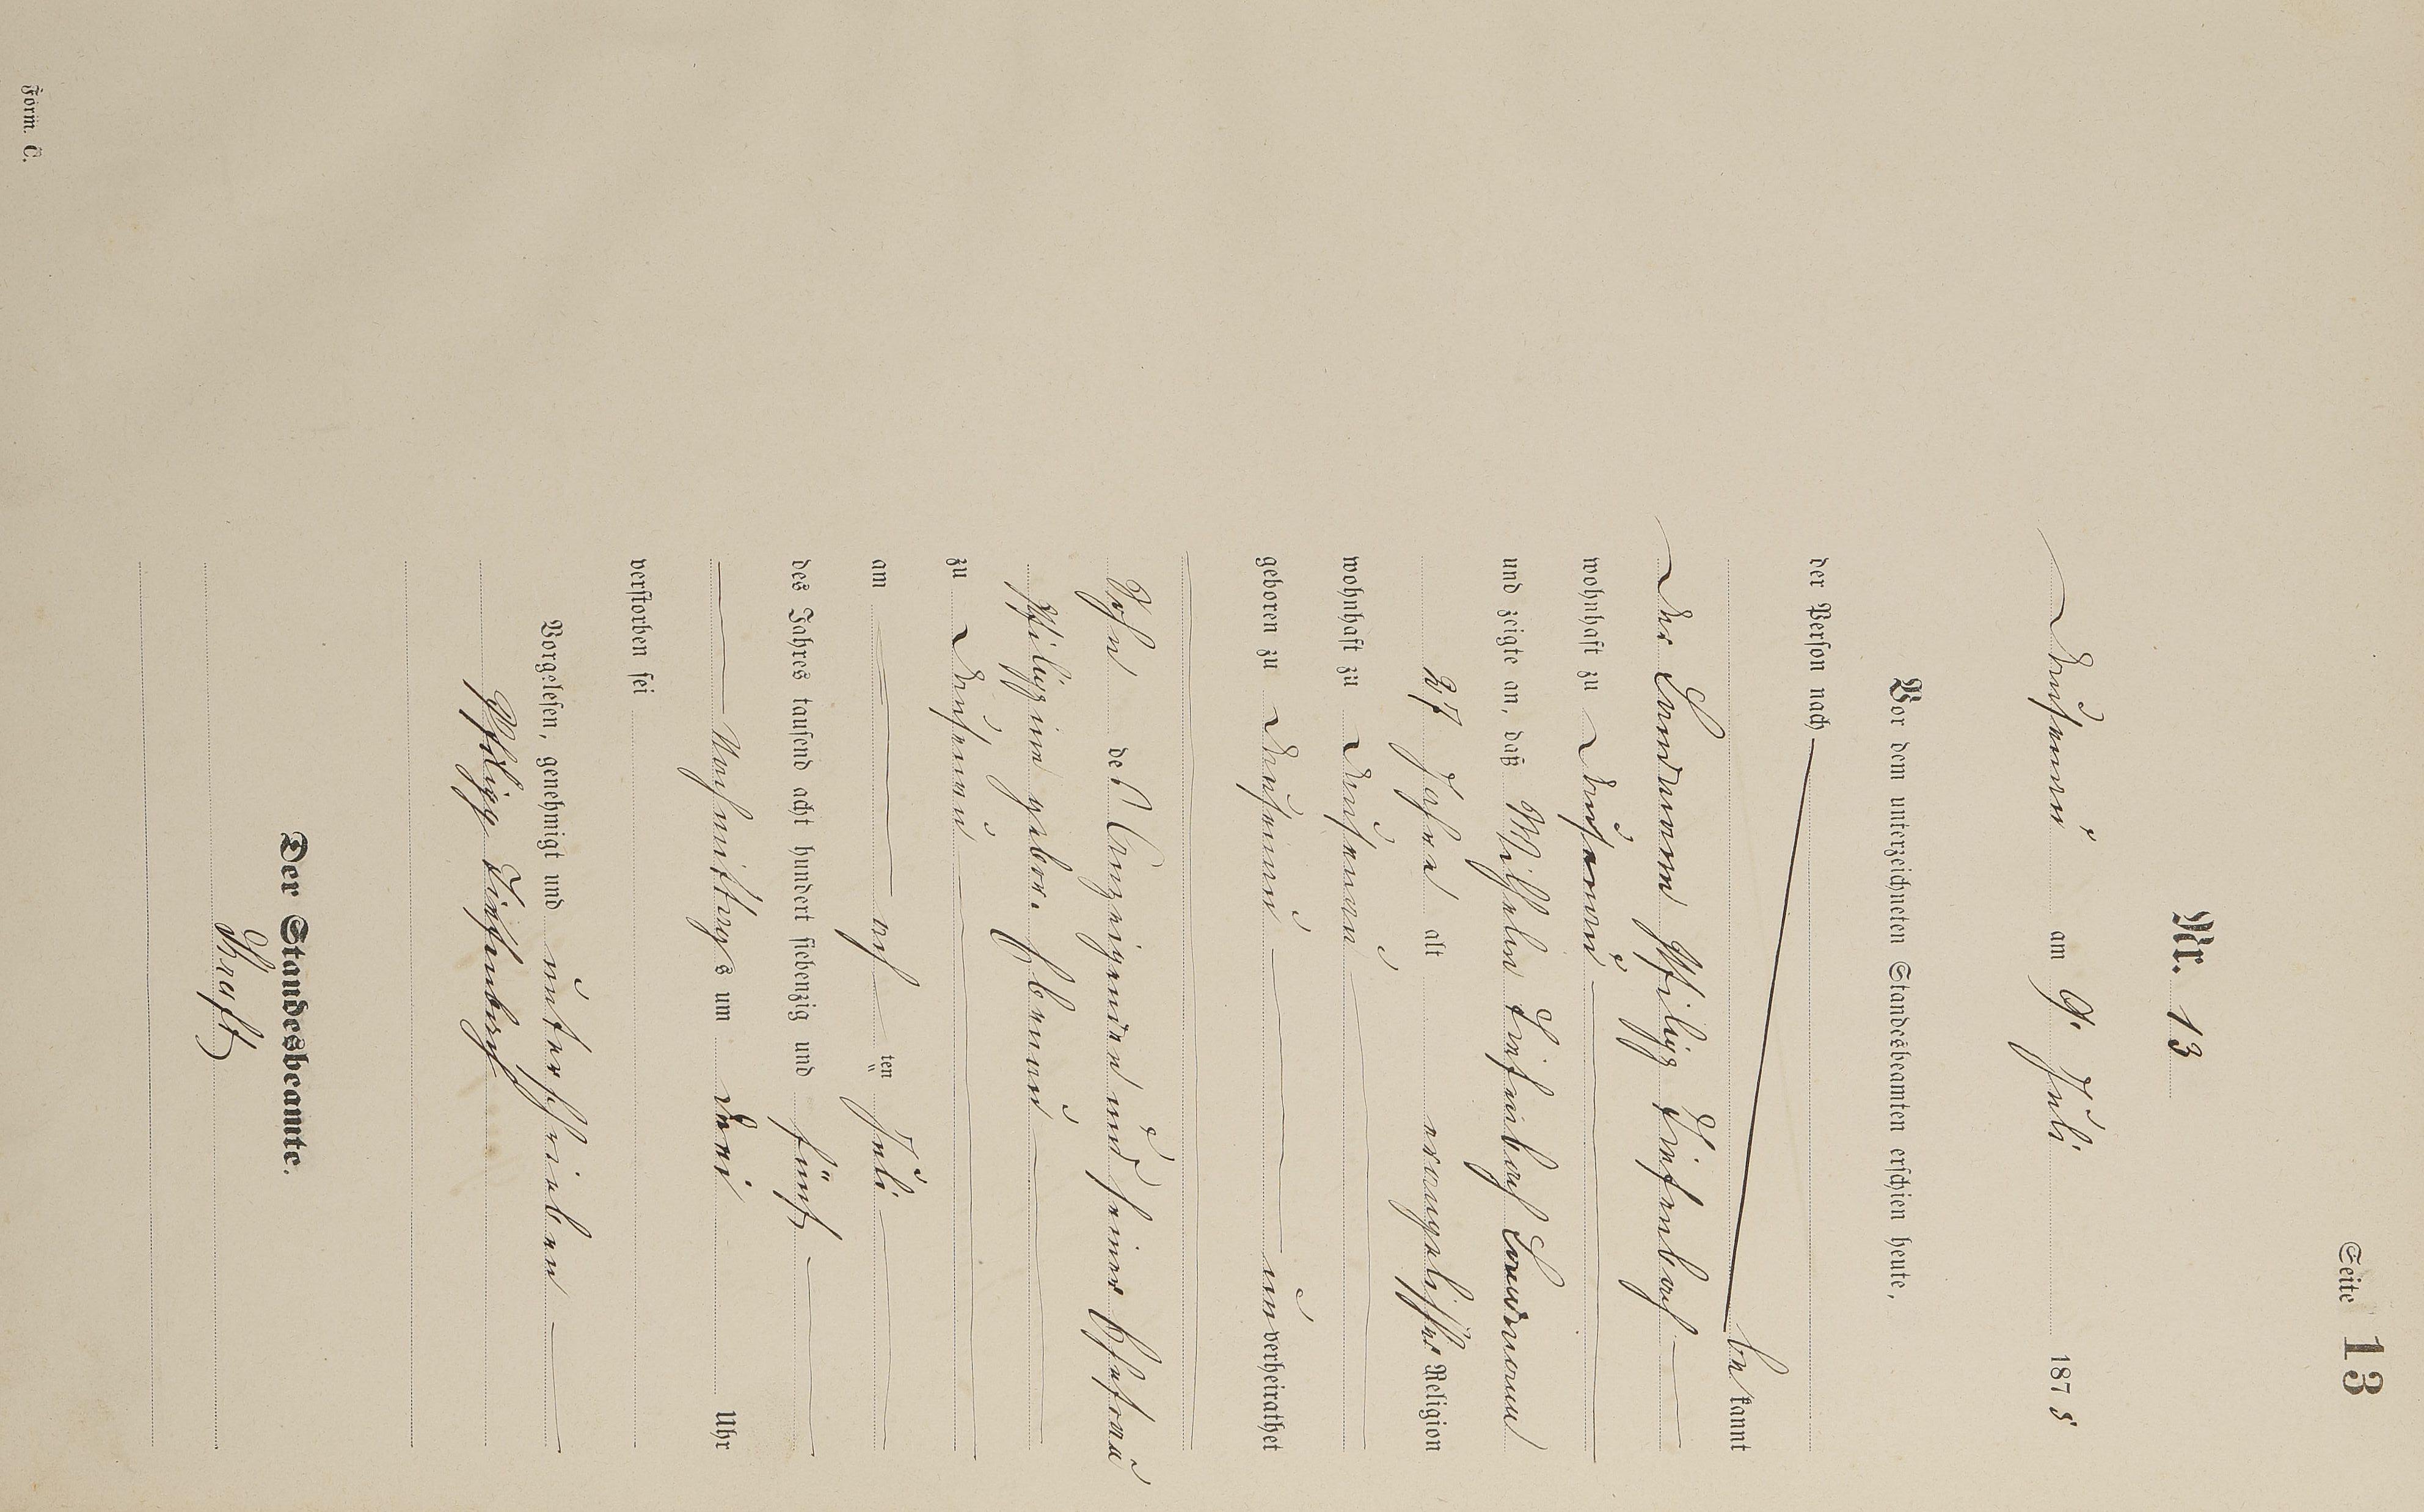 Seite 13
Nr. 13
am 9. Juli 1875
Vor dem unterzeichneten Standesbeamten erschien heute,
der Person nach
bekannt
der Landmann Philipp Diefenbach
wohnhaft zu
und zeigte an, daß Wilhelm Diefenbach Landmann
27 Jahre alt evangelischer Religion
wohnhaft zu
geboren zu unverheirathet
Sohn des Anzeigenden und seiner Ehefrau
Philippine gebor.
zu
am acht ten Juli
des Jahres tausend acht hundert siebenzig und fünf
Nachmittags um drei Uhr
verstorben sei
Vorgelesen, genehmigt und unterschrieben
Philipp Diefenbach
Der Standesbeamte.
Kraft
Form. C.